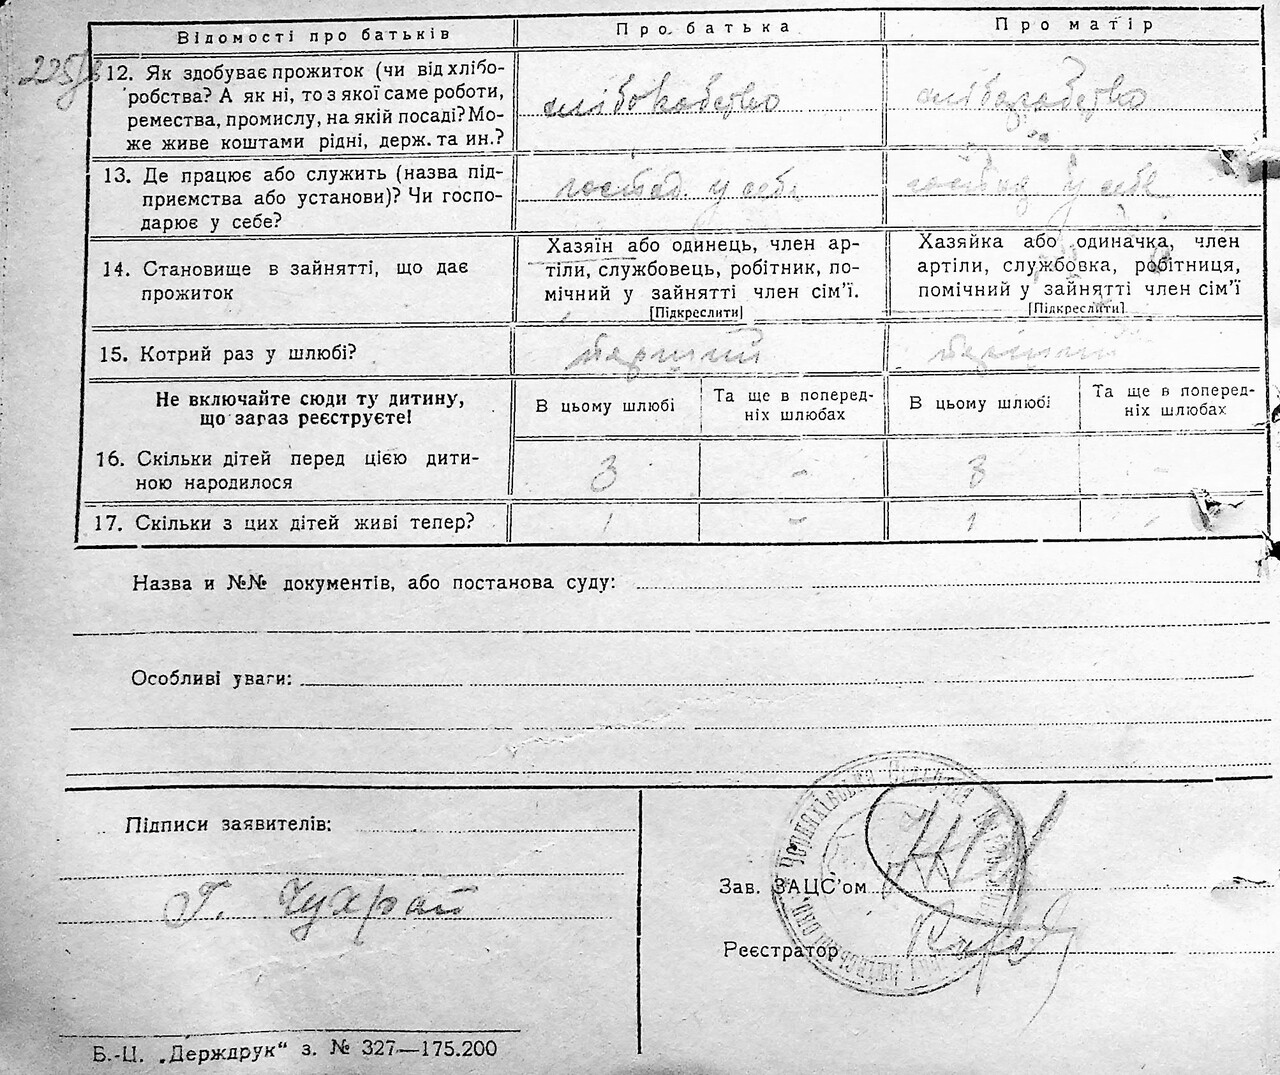 Відомості про батьків Про батька Про матір
225/в
12. Як здобуває прожиток (чи від хлібо-
робства? А як ні, то з якої саме роботи,
ремества, промислу, на якій посаді? Мо-
же живе коштами рідні, держ. та ин.?
хліборобство хліборобство
13. Де працює або служить (назва під-
приємства або установи)? Чи госпо-
дарює у себе?
господ. у себе господ у себе
14. Становище в зайнятті, що дає
прожиток
Хазяїн або одинець, член ар-
тіли, службовець, робітник, по-
мічний у зайнятті член сім'ї.
[Підкреслити]
Хазяйка або одиначка, член
артіли, службовка, робітниця,
помічний у зайнятті член сім'ї
[Підкреслити]
15. Котрий раз у шлюбі? перший перший
Не включайте сюди ту дитину,
що зараз реєструєте!
В цьому шлюбі
Та ще в поперед-
ніх шлюбах
В цьому шлюбі
Та ще в поперед-
ніх шлюбах
16. Скільки дітей перед цією дити-
ною народилося
3 - 3 -
17. Скільки з цих дітей живі тепер? 1 - 1 -
Назва и №№ документів, або постанова суду:
Особливі уваги:
Підписи заявителів:
Г. Чухрай
Зав. ЗАЦС'ом
Реєстратор
Б.-Ц. „Держдрук“ з. № 327—175.200